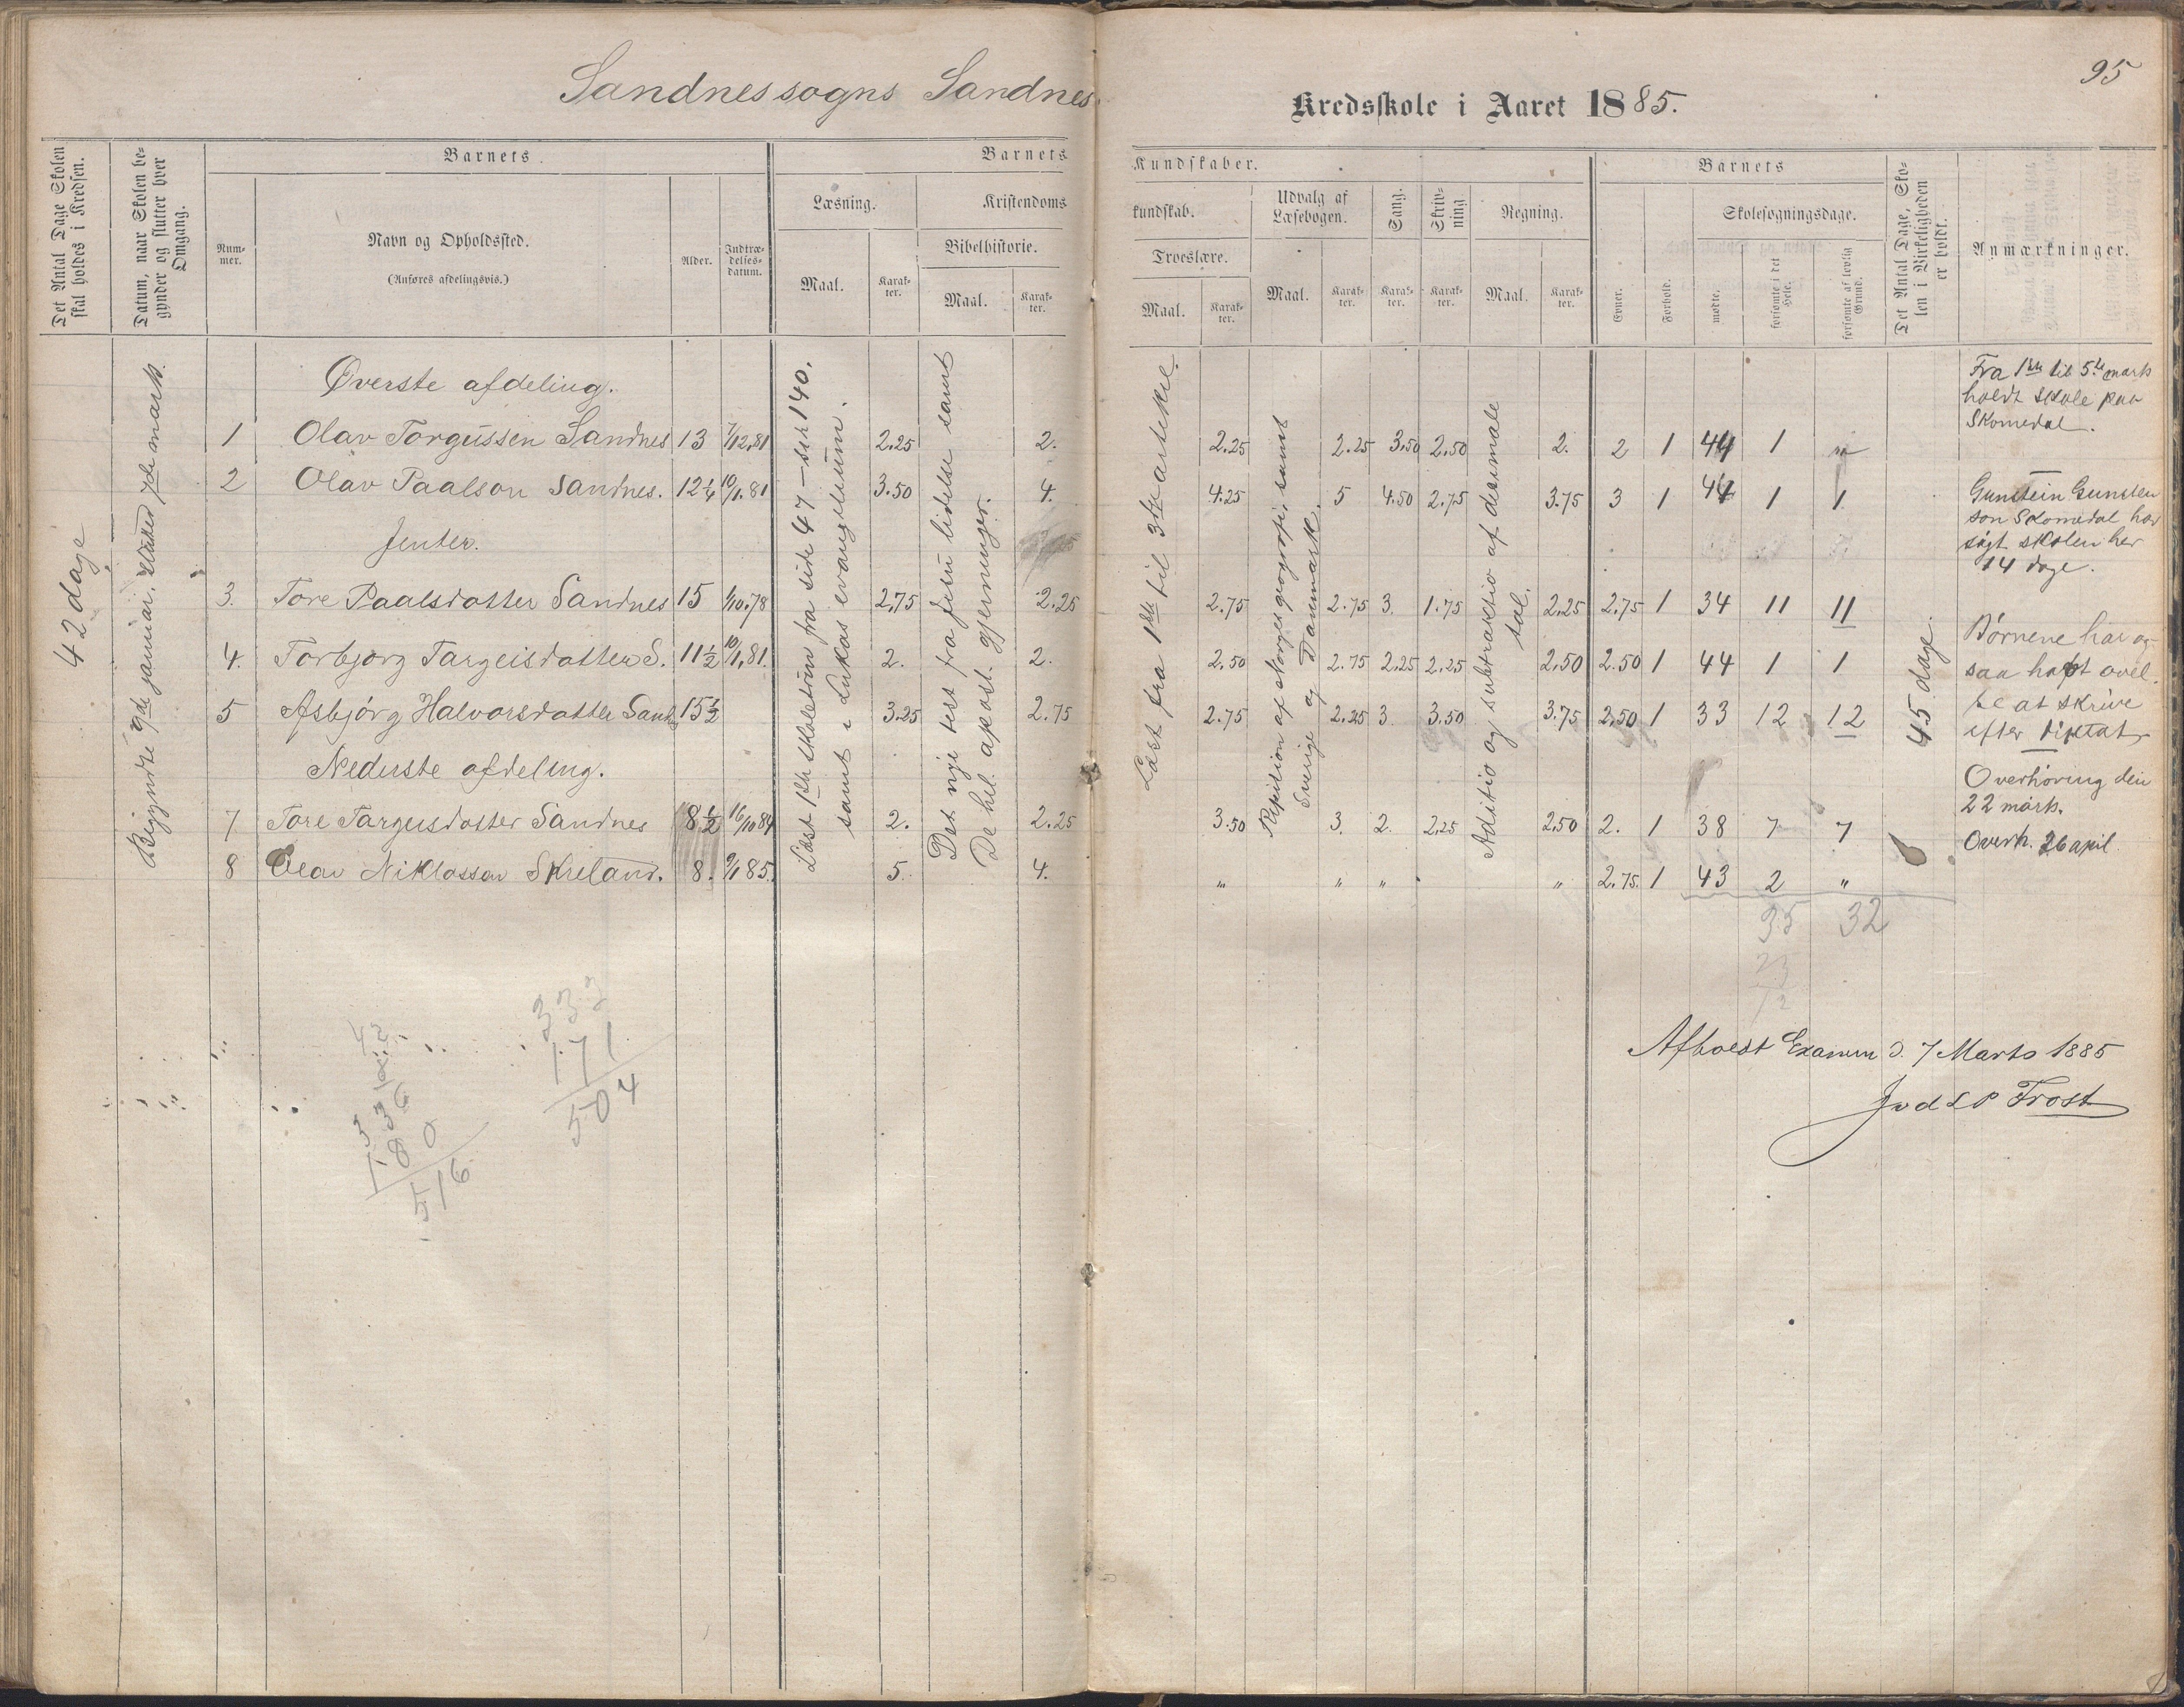 Sandnessogns Sandnes
95
Kredsskole i Aaret 1885.
Det Antal Dage Skolen skal holdes i Kredsen.
Datum, naar Skolen begynder og slutter hver Omgang.
Barnets
Nummer.
Navn og Opholdssted.
(Anføres afdelingsvis.)
Alder.
Indtrædelsesdatum.
Barnets
Læsning.
Maal.
Karakter.
Kristendoms
Bibelhistorie.
Maal.
Karakter.
Kundskaber.
kundskab.
Troeslære.
Maal.
Karakter.
Udvalg af Læsebogen.
Maal.
Karakter.
Sang.
Karakter.
Skrivning
Karakter.
Regning.
Maal.
Karakter.
Barnets
Evner.
Forhold.
Skolesøgningsdage.
mødte.
forsømte i det Hele.
forsømte af lovlig Grund.
Det Antal Dage, Skolen i Virkeligheden er holdt.
Anmærkninger.
42 dage
Begyndte 9de januar. slutted 7de marts.
Læst 1ste skoletrin fra side 47 – 140.
samt i Lukas evangelium.
Det nye test. fra Jesu lidelse samt
De hel. apost. gjerninger.
Læst fra 1ste til 3die artikel.
Repitition af Norges geografi, samt
Sverige og Danmark.
Aditio og subtraktio af desimale
tal.
45 dage.
Øverste afdeling.
1 Olav Torgussen Sandnes 13 7/12.81 2.25 2. 2.25 2.25 3.50 2.50 2. 2 1 44 1
2 Olav Paalson Sandnes. 12¼ 10/1.81 3.50 4. 4.25 5 4.50 2.75 3.75 3 1 44 1 1
Jenter.
3. Tore Paalsdatter Sandnes 15 1/10.78 2.75 2.25 2.75 2.75 3. 1.75 2.25 2.75 1 34 11 11
4. Torbjørg Targeisdatter S. 11½ 10/1.81. 2. 2. 2.50 2.75 2.25 2.25 2.50 2.50 1 44 1 1
5 Asbjørg Halvorsdatter Sand 15½ 3.25 2.75 2.75 2.25 3. 3.50 3.75 2.50 1 33 12 12
Nederste afdeling.
7 Tore Targeisdatter Sandnes 8½ 16/10 84 2. 2.25 3.50 3. 2. 2.25 2.50 2. 1 38 7 7
8 Olav Niklosson Skreland. 8. 9/1 85. 5. 4. " " " " 2.75. 1 43 2 "
35 32
Fra 1ste til 5te marts
holdt skole paa
Skomedal.
Gunstein Gunsten
son Skomedal har
søgt skolen her
14 dage.
Børnene har og
saa haft øvel
se at skrive
efter diktat
Overhøring den
22 marts.
Overh. 26 april
42
336
180
516
333
171
504
Afholdt Examen d. 7 Marts 1885
Frost